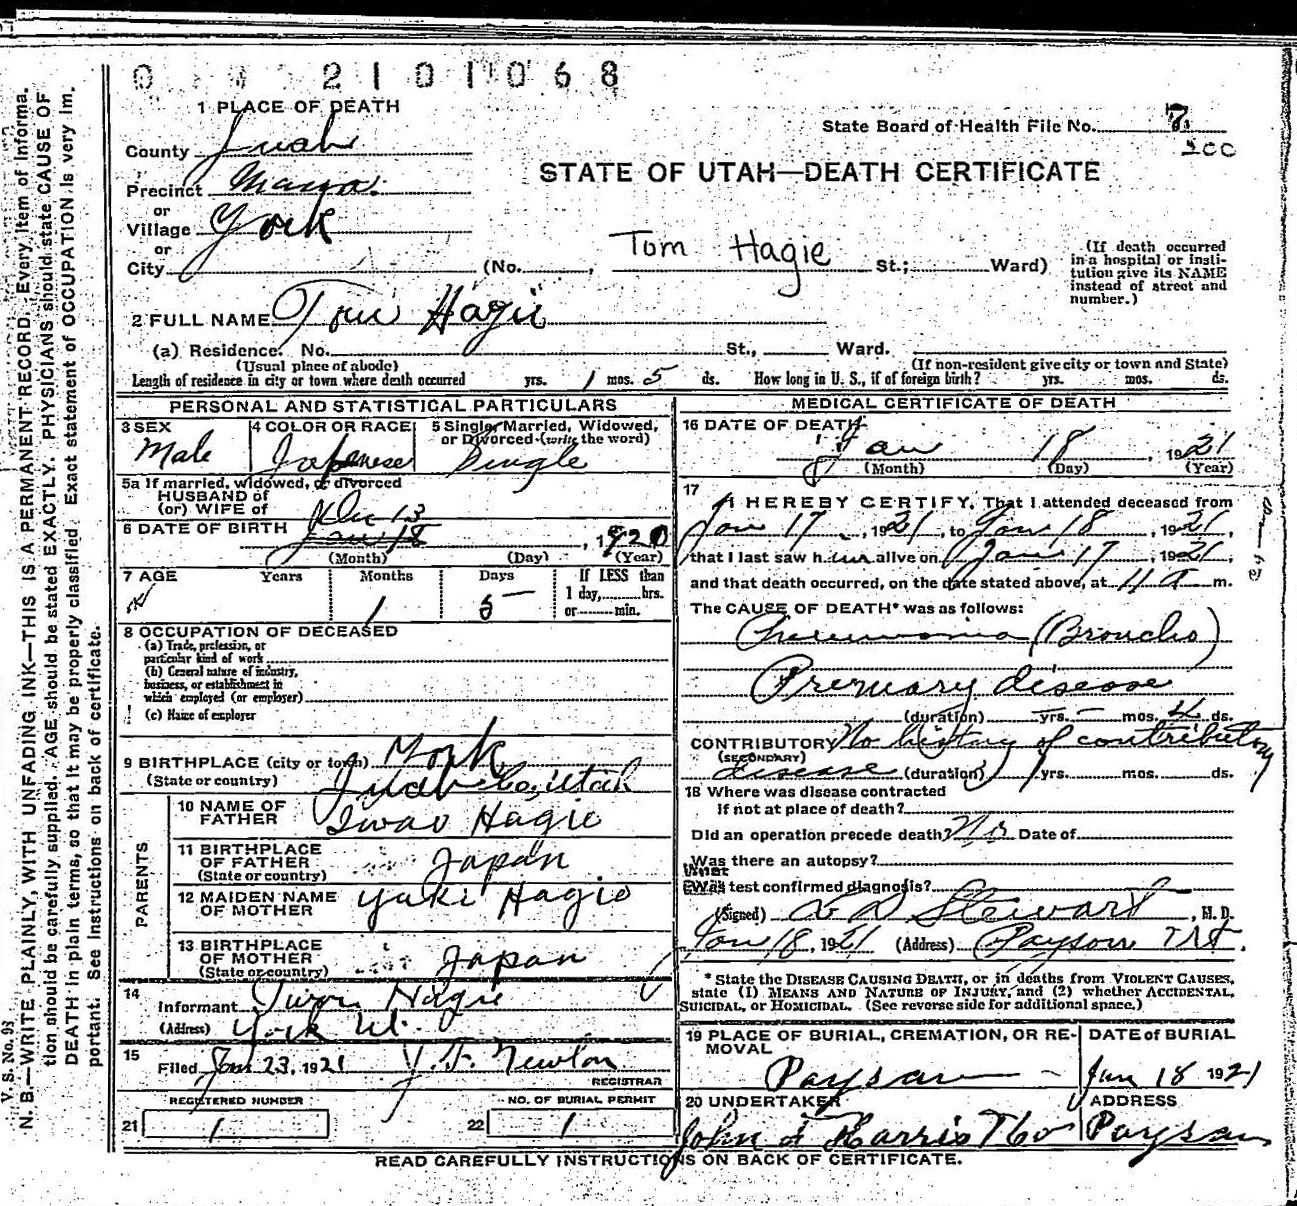 2101068
1 PLACE OF DEATH
State Board of Health File No. 7
200
County Juab
STATE OF UTAH—DEATH CERTIFICATE
Precinct Mona
or
Village York
or
City (No. , Tom Hagie St.; Ward)
(If death occurred in a hospital or institution give its NAME instead of street and number.)
2 FULL NAME Tom Hagie
(a) Residence. No. St., Ward.
(Usual place of abode) (If non-resident give city or town and State)
Length of residence in city or town where death occurred yrs. 1 mos. 5 ds. How long in U. S., if of foreign birth? yrs. mos. ds.
PERSONAL AND STATISTICAL PARTICULARS
3 SEX
Male
4 COLOR OR RACE
Japenese
5 Single, Married, Widowed, or Divorced (write the word)
Single
5a If married, widowed, or divorced
HUSBAND of
(or) WIFE of
Dec 13
6 DATE OF BIRTH Jan 18, 1920
(Month) (Day) (Year)
7 AGE Years Months Days If LESS than
1 5 1 day, hrs.
or min.
8 OCCUPATION OF DECEASED
(a) Trade, profession, or
particular kind of work
(b) General nature of industry,
business, or establishment in
which employed (or employer)
(c) Name of employer
9 BIRTHPLACE (city or town) York
(State or country) Juab Co, Utah
PARENTS
10 NAME OF
FATHER Iwao Hagie
11 BIRTHPLACE
OF FATHER Japan
(State or country)
12 MAIDEN NAME
OF MOTHER Yuki Hagie
13 BIRTHPLACE
OF MOTHER Japan
(State or country)
14
Informant Iwao Hagie
(Address) York Ut.
15
Filed Jan 23, 1921 J. F. Newton
REGISTRAR
REGISTERED NUMBER
21 1
NO. OF BURIAL PERMIT
22 1
MEDICAL CERTIFICATE OF DEATH
16 DATE OF DEATH
Jan 18, 1921
(Month) (Day) (Year)
17
I HEREBY CERTIFY, That I attended deceased from
Jan 17, 1921, to Jan 18, 1921,
that I last saw him alive on Jan 17, 1921,
and that death occurred, on the date stated above, at 11 a m.
The CAUSE OF DEATH* was as follows:
Pneumonia (Broncho)
Premary disease
(duration) yrs. — mos. 4 ds.
CONTRIBUTORY No history of contributory
(SECONDARY)
disease (duration) yrs. mos. ds.
18 Where was disease contracted
If not at place of death?
Did an operation precede death? No Date of
Was there an autopsy?
What test confirmed diagnosis?
(Signed) Stewart, M. D.
Jan 18, 1921 (Address) Payson Ut.
* State the DISEASE CAUSING DEATH, or in deaths from VIOLENT CAUSES,
state (1) MEANS AND NATURE OF INJURY, and (2) whether ACCIDENTAL,
SUICIDAL, or HOMICIDAL. (See reverse side for additional space.)
19 PLACE OF BURIAL, CREMATION, OR REMOVAL
Payson
DATE OF BURIAL
Jan 18 1921
20 UNDERTAKER
John Harris & Co
ADDRESS
Payson
READ CAREFULLY INSTRUCTIONS ON BACK OF CERTIFICATE.
V. S. No. 93
N. B.—WRITE PLAINLY, WITH UNFADING INK—THIS IS A PERMANENT RECORD. Every item of informa-
tion should be carefully supplied. AGE should be stated EXACTLY. PHYSICIANS should state CAUSE OF
DEATH in plain terms, so that it may be properly classified. Exact statement of OCCUPATION is very im-
portant. See instructions on back of certificate.